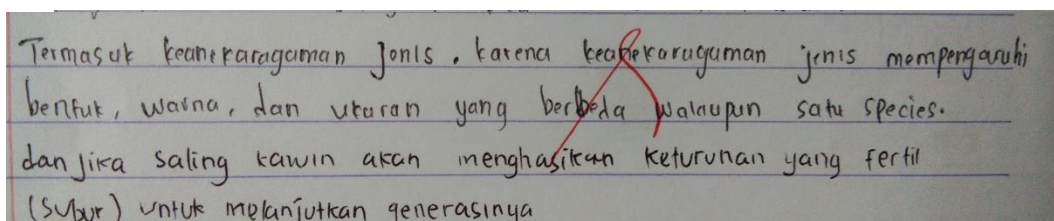 Termasuk keanekaragaman Jenis. karena keanekaragaman jenis mempengaruhi
bentuk, warna, dan ukuran yang berbeda walaupun satu species.
dan jika saling kawin akan menghasikan keturunan yang fertil
(subur) untuk melanjutkan generasinya